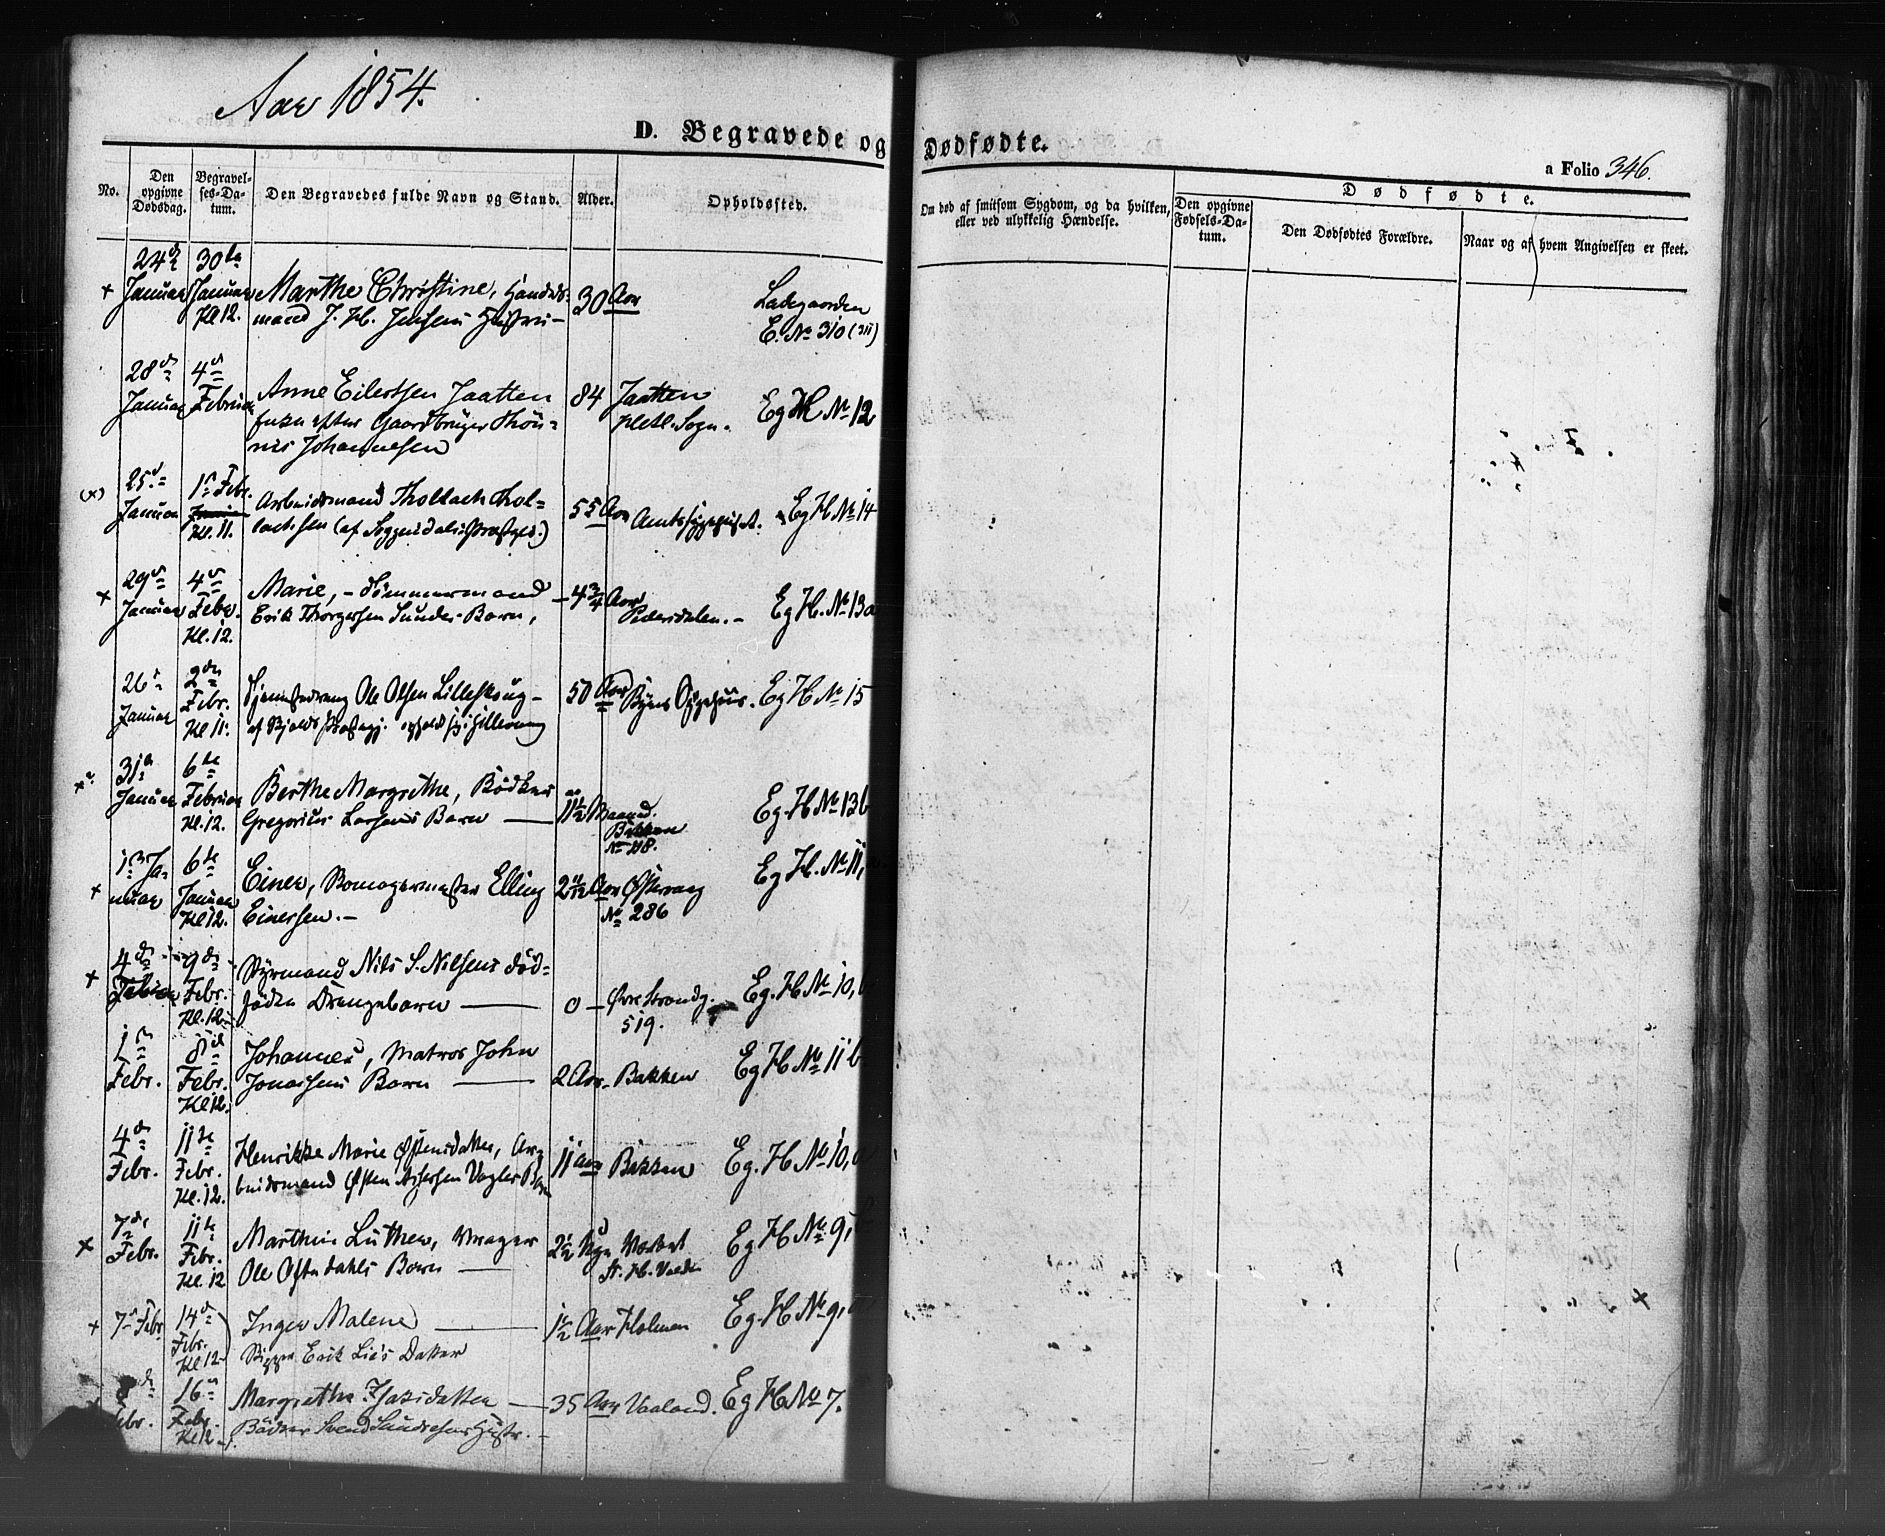 Aar 1854.
D. Begravede og Dødfødte.
a Folio 346.
No.
Den opgivne Dødsdag.
Begravelses-Datum.
Den Begravedes fulde Navn og Stand.
Alder.
Opholdssted.
Om død af smitsom Sygdom, og da hvilken,
eller ved ulykkelig Hændelse.
Den opgivne Fødsels-Datum.
Dødfødte.
Den Dødfødtes Forældre.
Naar og af hvem Angivelsen er skeet.
24de 30te
× Januar Januar Marthe Christine, Handels- 30 Aar Ladegaarden
Kl 12. mand J. H. Jensens Hustru – E. No 310 (311)
28de 4de
Januar Februar Anne Eilertsen Jaatten 84 Jaatten Eg H No 12
Enke efter Gaardbruger Thön- Hetl. Sogn.
nis Johannesen
25de 1ste Febr.
(×) Januar Arbeidsmand Thollach Thol- 55 Aar Amtssygehuset. Eg H. No 14
Kl. 11. lachsen (af Præstegj.)
29de 4de
× Januar Febr. Marie, – Tömmermand – 4 3/4 Aar Eg H. No 13a
Kl. 12. Erik Thorgersen Sundes Barn, Pedersdalen. –
26de 2den
Januar Febr. Ole Olsen Lilleskoug – 50 Aar Byens Sygehuus. Eg H No 15
Kl 11. af Præstegj.
31te 6te
Januar Februar Berthe Margrethe, Bödker 11 1/2 Maaned. Eg. H No 13b
Kl. 12. Gregorius Larsens Barn — Bakken
No 118.
13 Ja- 6te
× nuar Januar Einer, Elling 2 11/12 Aar Østervaag Eg H. No 11,
Kl 12. Einersen. – No 286
4de 9de
× Febr. Styrmand Nils S. Nilsens död- Eg. H No 10,
Kl. 12 födte Drengebarn — 0 – Øvre Strandg.
519.
1ste 8de
Febr. Febr. Johannes, Matros John Eg H No 11b
Kl 12. Jonassens Barn — 2 Aar – Bakken
4de 11te
Febr. Febr. Henrikke Marie Østensdatter, Ar- 11 Aar Bakken Eg. H No 10,
Kl. 12. beidsmand Østen Barn
7de 11te
× Febr. Febr. Marthin Luther, Vrager 2 1/2 Eg H No 9,
Kl. 12 Ole Barn —
× 7de Febr 14de Febr. Inger Malene — 1 1/2 Aar Holmen Eg. H No 9,
Kl 12 – Skipper Erik Lies Datter
8de 16de
Febr. Febr. Margrethe – 35 Aar Vaaland. Eg H No 7.
Kl 12 – Bödker Svend Hustr. –